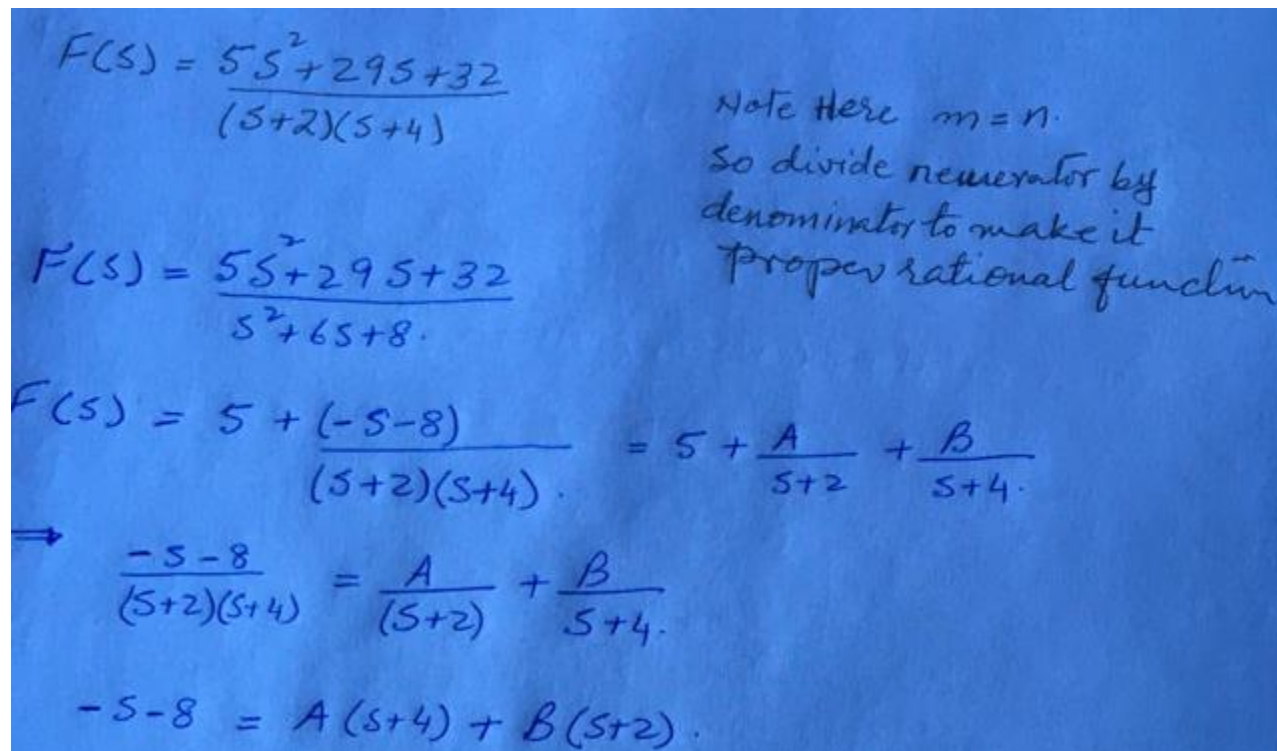 F(s) = 5s²+29s+32
(s+2)(s+4)
Note Here m = n.
So divide neuerator by
denominator to make it
proper rational function
F(s) = 5s²+29s+32
s²+6s+8.
F(s) = 5 + (-s-8) = 5 + A + B
(s+2)(s+4). s+2 s+4.
⇒ -s-8 = A + B
(s+2)(s+4) (s+2) s+4.
-s-8 = A(s+4) + B(s+2).